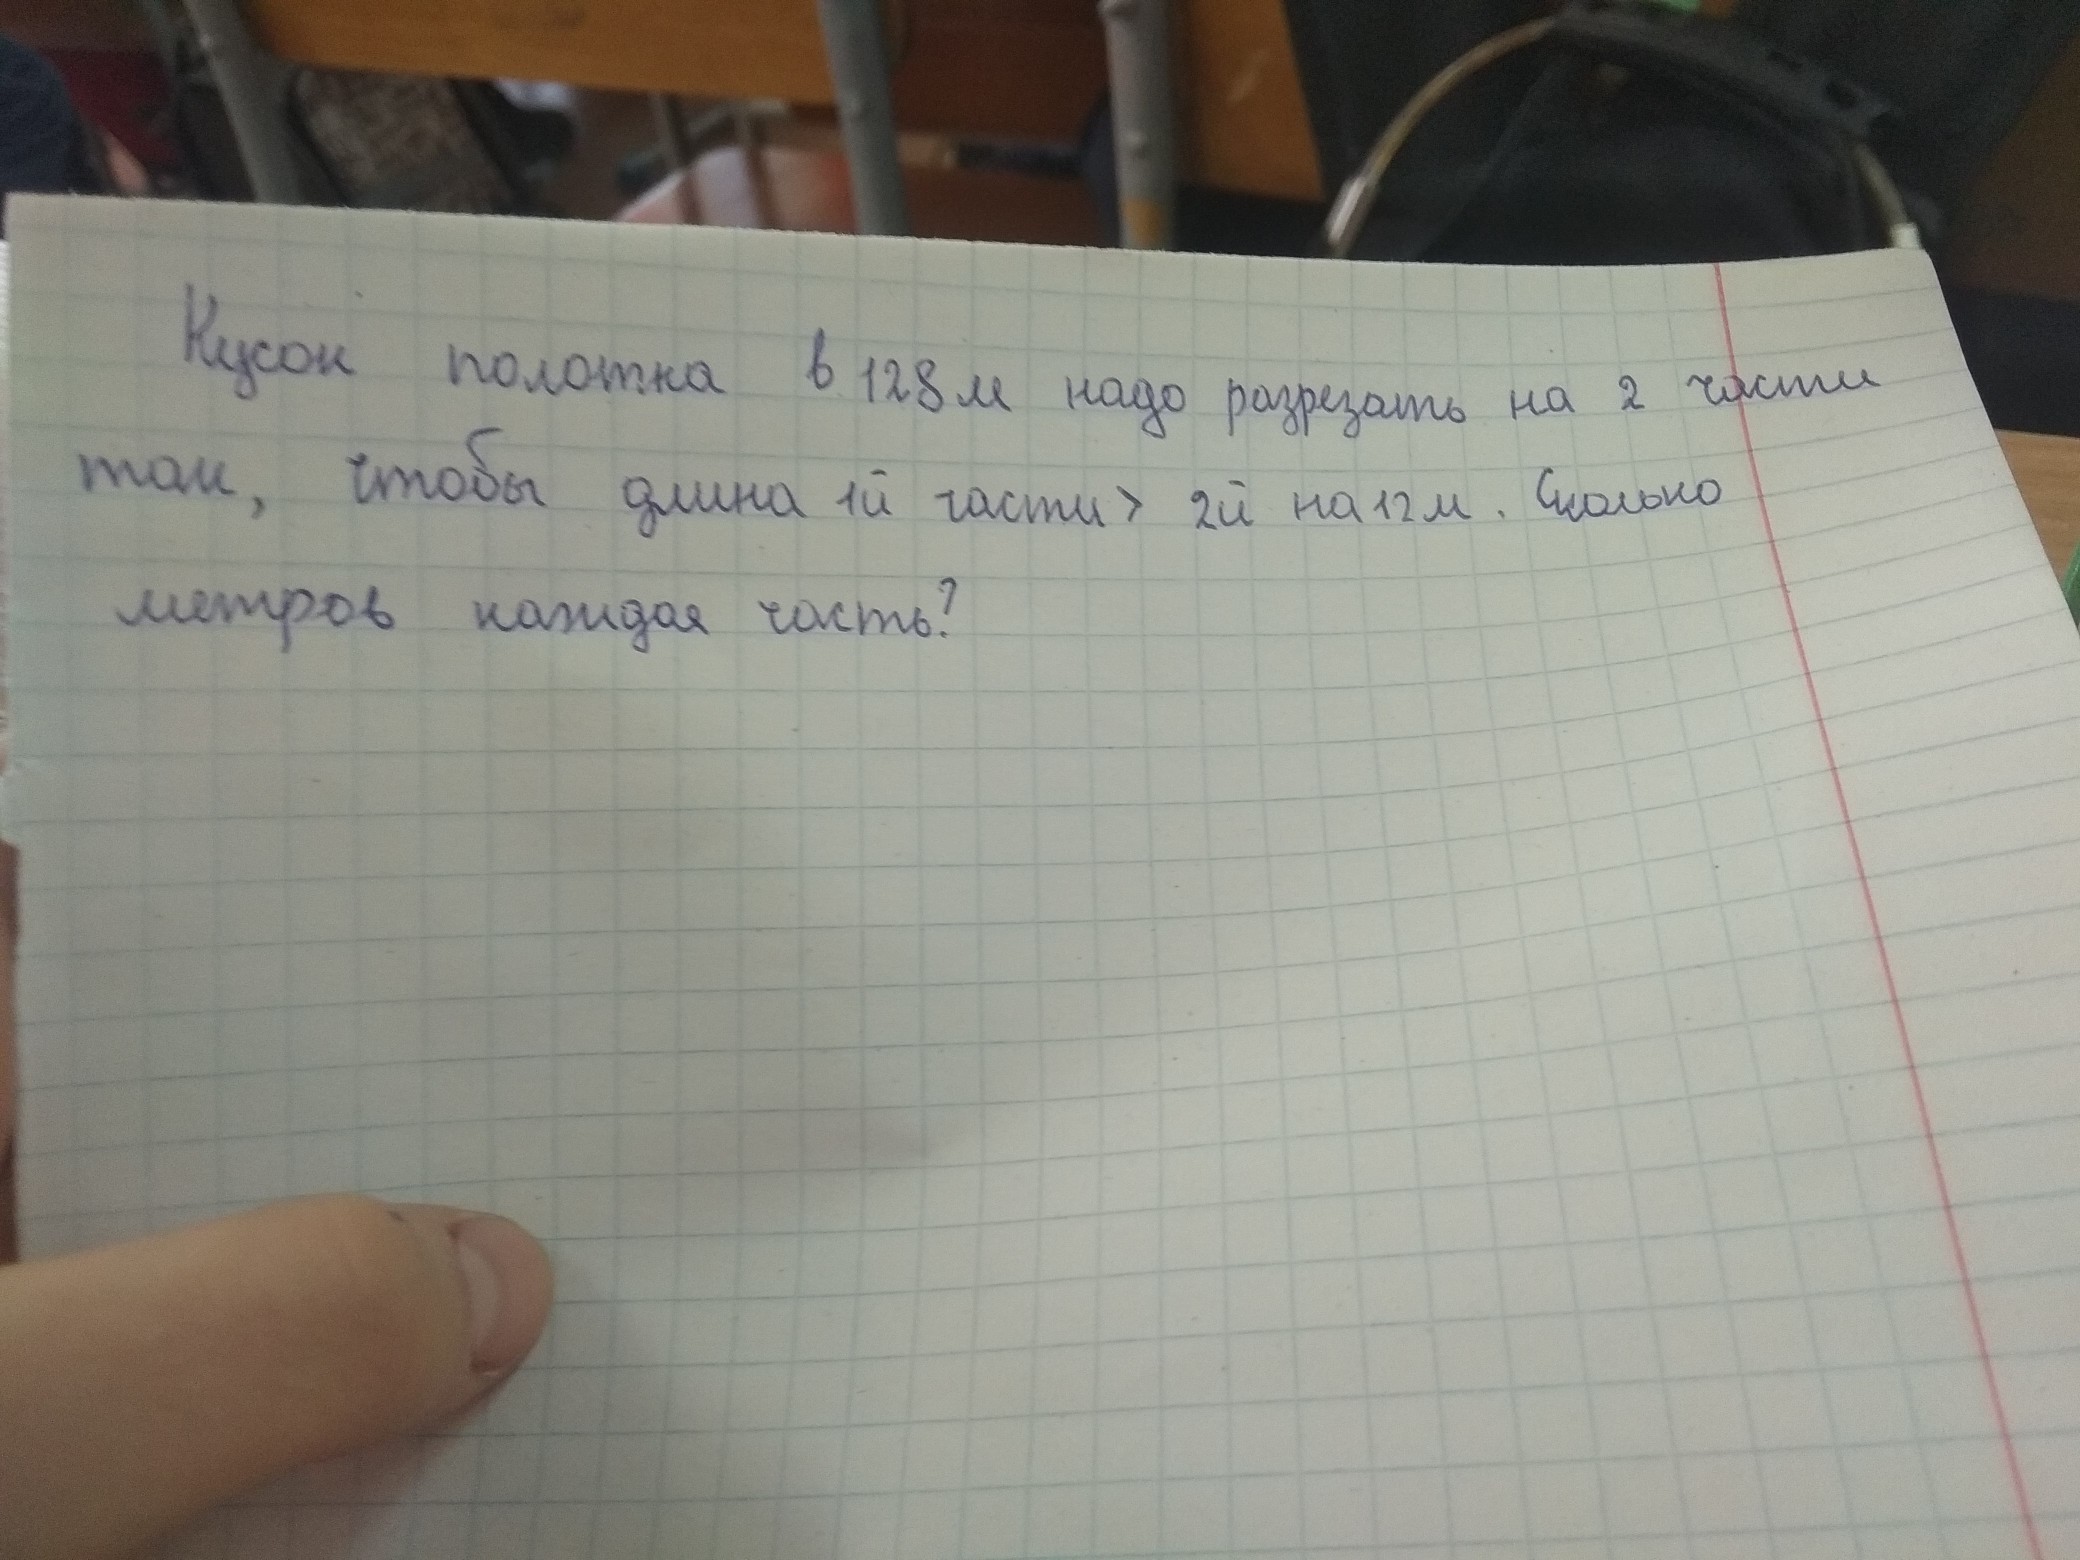 Кусок полотна в 128 м надо разрезать на 2 части
так, чтобы длина 1й части > 2й на 12 м. Сколько
метров каждая часть?